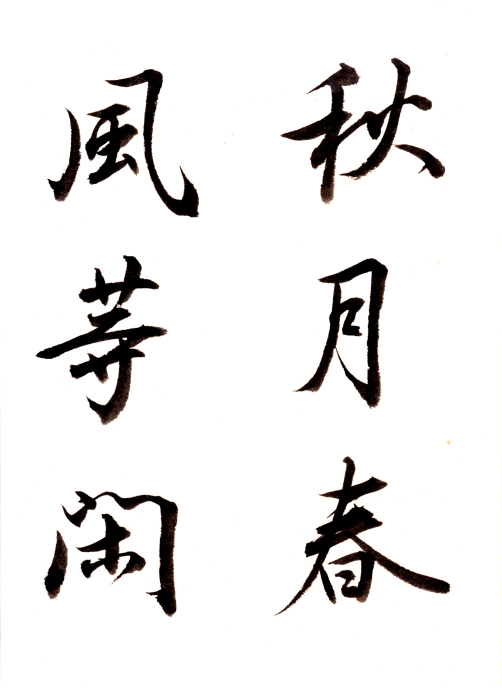 秋月春
風等閑